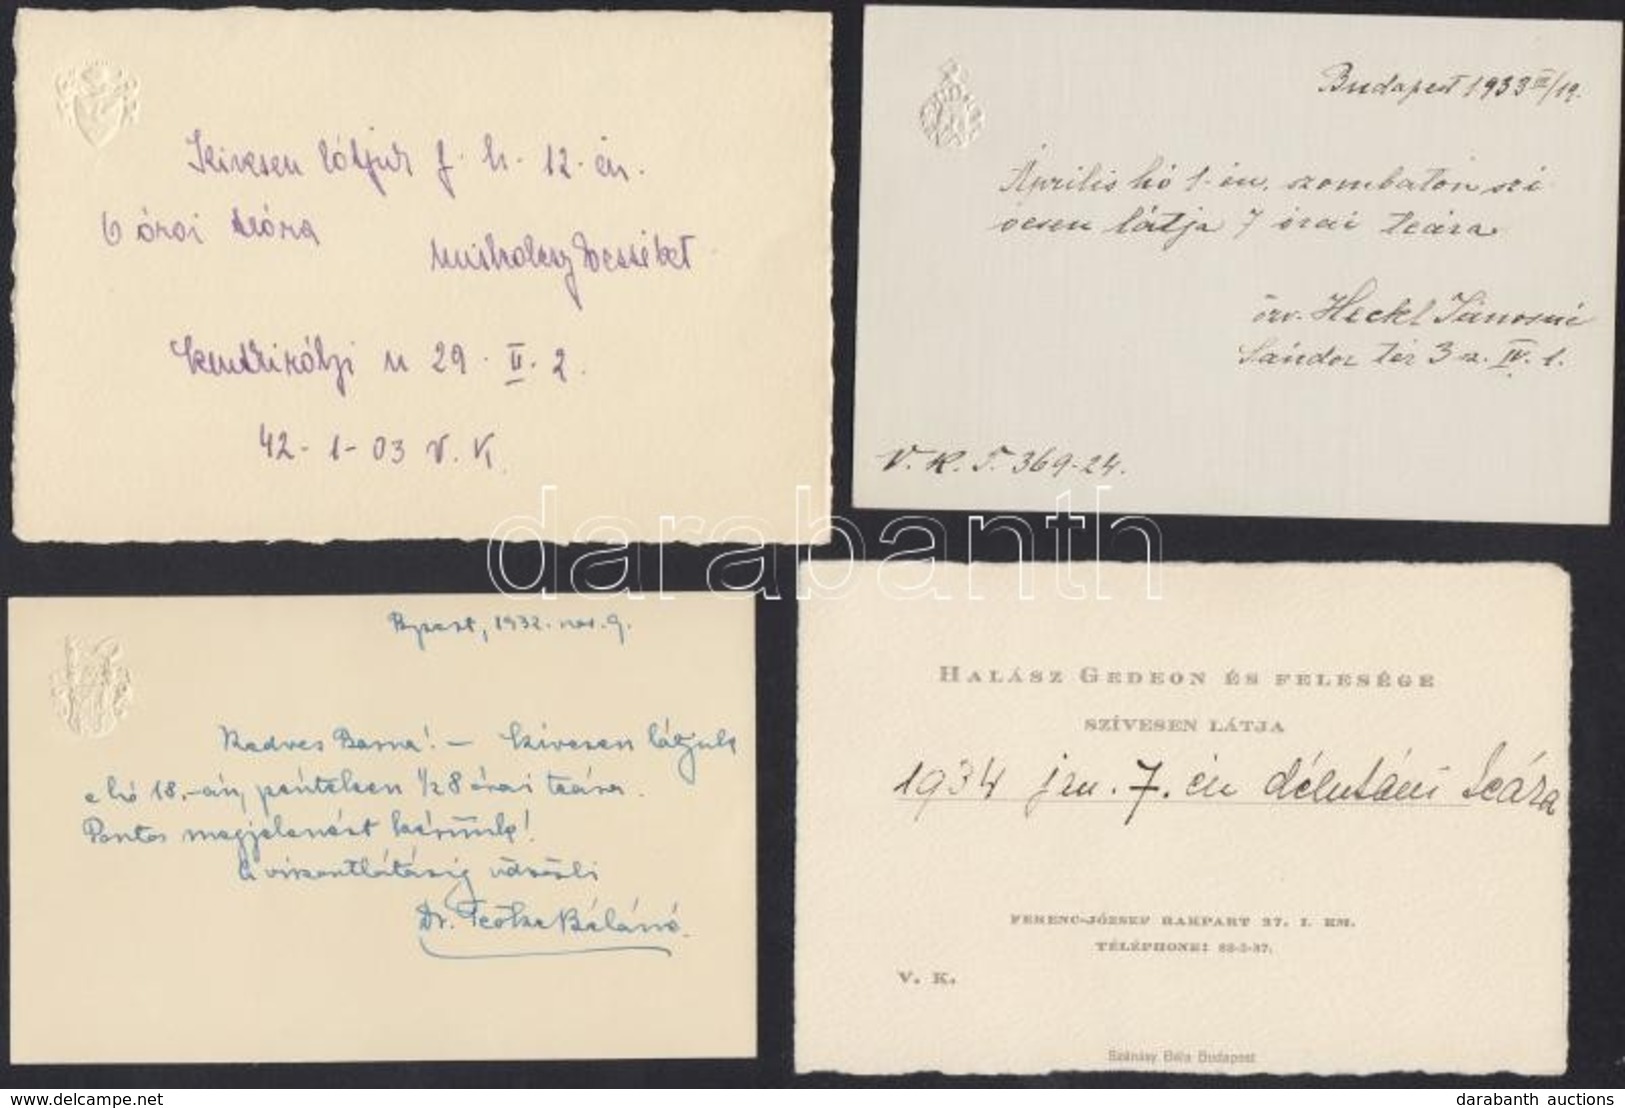 Szivesen látjuk f. h. 12-én.
6 órai teára
Miskolczy Dessőéket
Szentkirályi u 29. II. 2.
42-1-03 V. K.
Budapest 1933 III/19.
Április hó 1-én, szombaton szi
vesen látja 7 órai teára
özv. Heckl Jánosné
Sándor tér 3 sz. IV. 1.
V. K. T. 369-24.
Bpest, 1932. nov. 9.
Kedves Barna! – Szivesen látjuk
e hó 18.-án, pénteken 1/2 8 órai teára.
Pontos megjelenést kérünk!
A viszontlátásig üdvözli
Dr. Béláné.
HALÁSZ GEDEON ÉS FELESÉGE
SZÍVESEN LÁTJA
1934 jan. 7.-én délutáni teára
FERENC-JÓZSEF RAKPART 27. I. EM.
TÉLÉPHONE: 88-3-87.
V. K.
Szénásy Béla Budapest
darabanth
the world's largest marketplace for collectors
darabanth auctions